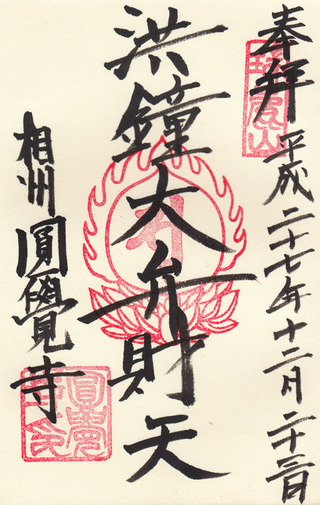 奉拝 平成二十七年十二月二十三日
瑞鹿山
洪鐘大弁財天
相州圓覺寺